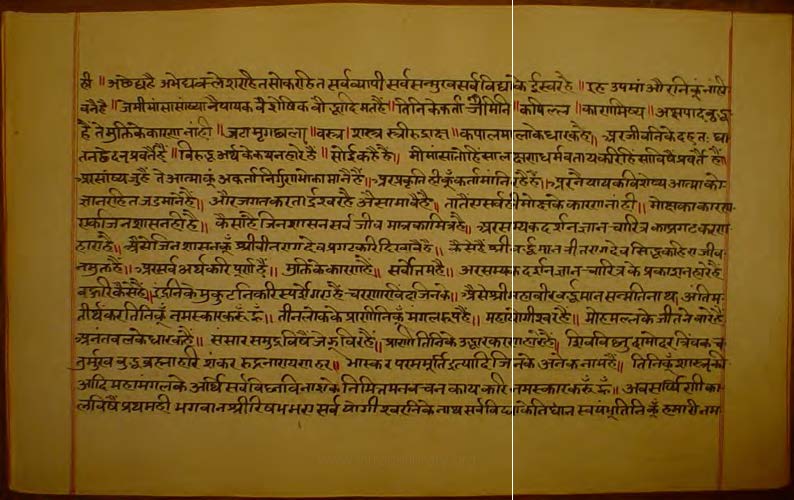 ही ॥ अछेद्यहै अभेद्यक्लेशरहितसोकरहित सर्वव्यापी सर्वसन्मुखसर्वविद्याके ईस्वरहै ॥ उपमां औरनिकूं नांही
वनैहै ॥ जमीमांसासांष्या नैयायक वैशेषिक वौद्धादिमतहैं॥ तिनिकेकर्ता जैमिनि ॥ कपिल ॥ काणभिष्य ॥ अक्षपाद बुद्ध
हैं ते मुक्तिकेकारण नांही ॥ जटा मृगछाला ॥ वस्त्र ॥ शास्त्र स्त्रीरुद्राक्ष ॥ कपालमालाकेधारकहै॥ अर जीवनिके
प्रवर्तैहैं ॥ विरुद्ध अर्थकेकथनहारेहैं ॥ सोईकहैहैं॥ मीमांसातोहिंसालक्षणधर्मवतायकरिहिंसाविषैंप्रवर्तैहै॥
अरसांष्यजुहैं ते आत्माकूं अकर्तानिर्गुणभोक्तामानैहैं॥ अरप्रकृतिहीकूंकर्तामांनिरहेहैं॥ अरनैयायकविशेष्य आत्माको
ज्ञानरहितजडमानेहैं॥ औरजगतकरता ईश्वरहै ऐसामानैहै॥ तातैंएसर्वहीमोक्षकेकारणनांही॥ मोक्षकाकारण
एकजिनशासनहीहै॥ कैसाहैजिनशासनसर्व जीव मात्रकामित्रहै॥ अरसम्यकदर्शनज्ञानचारित्रकाप्रगटकरण
हाराहै॥ ऐसेजिनशासनकूं श्रीवीतरागदेवप्रगटकरिदिखावैहै॥ कैसेहैंश्रीवर्द्धमानवीतरागदेवसिद्धकहिए जीव
नमुक्तहैं॥ अरसर्व अर्थकरिपूर्णहैं॥ मुक्तिकेकारणहैं॥ सर्वोत्तमहै॥ अरसम्यकदर्शनज्ञानचारित्रके प्रकाशनहारेहैं
वहुरिकैसेहै॥ इंद्रनिके मुकुटनिकरिस्पर्शेगएहैं चरणारविंदजिनके॥ ऐसेश्रीमहावीरवर्द्धमानसन्मतिनाथ अंतिम
तीर्थंकरतिनिकूं नमस्कारकरूं हूं॥ तीनलोकके प्राणीनिकूं मंगलरूपहैं॥ महायोगीश्वरहैं॥ मोहमल्लके जीतनेवारेहैं
अनंतवलकेधारकहैं॥ संसारसमुद्रविषैं जे डूविरहैं॥ प्राणी तिनिके उद्धारकरणहारेहैं॥ शिवविष्नुदामोदर त्रिंवकच
तुर्मुख वुद्धब्रह्माहरि शंकर रुद्रनारायणहर॥ भास्कर परममूर्तिइत्यादिजिनके अनेक नामहैं॥ तिनिकूं शास्त्रकी
आदि महामंगलके अर्थि सर्वविघ्नविनाशके निमित्तमनवचन काय करि नमस्कारकरूंहूं॥ अवसर्प्पिणीका
लविषैं प्रथमही भगवानश्रीरिषभभए सर्व योगीश्वरनिकेनाथ सर्वविद्याकेनिधान स्वयंभूतिनिकूं हमारीनम